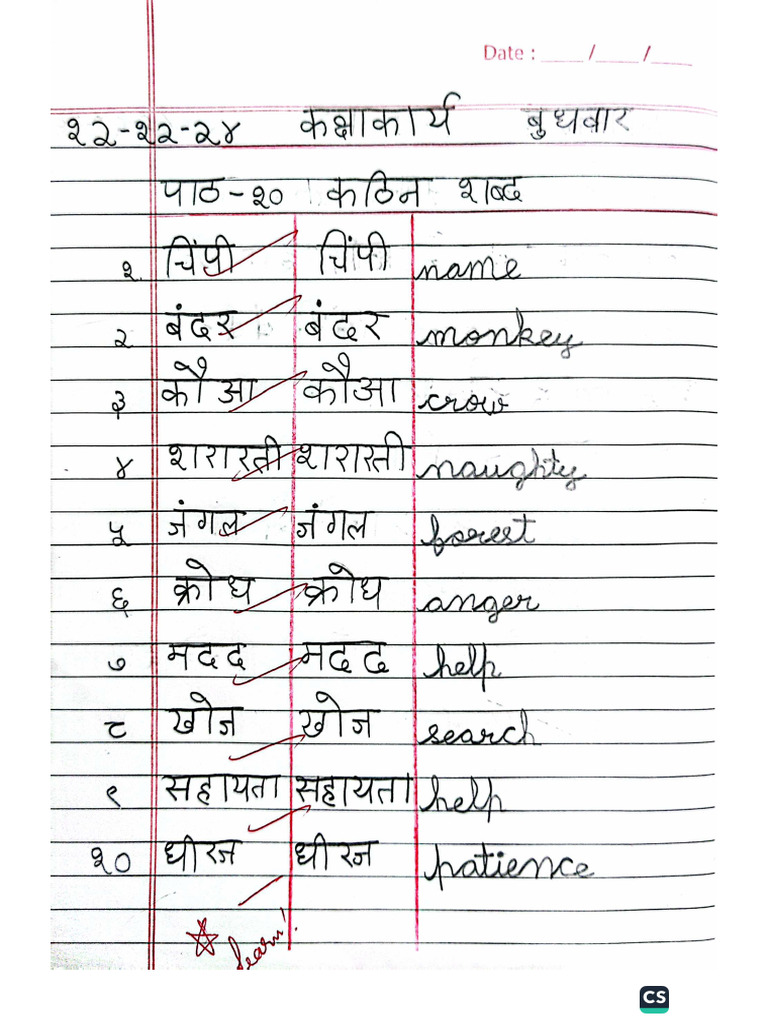 Date : ____ / ____ / ____
१२-१२-२४ कक्षाकार्य बुधवार
पाठ-१० कठिन शब्द
१. चिंपी चिंपी name
२ बंदर बंदर monkey
३ कौआ कौआ crow
४ शरारती शरारती naughty
५ जंगल जंगल forest
६ क्रोध क्रोध anger
७ मदद मदद help
८ खोज खोज search
९ सहायता सहायता help
१० धीरज धीरज patience
Learn!
CS